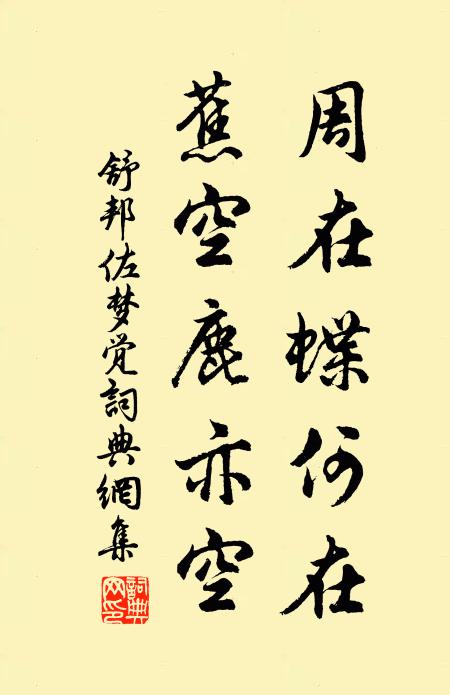 周在蝶何在
蕉空鹿亦空
舒邦佐梦觉詞典網集
詞典網印